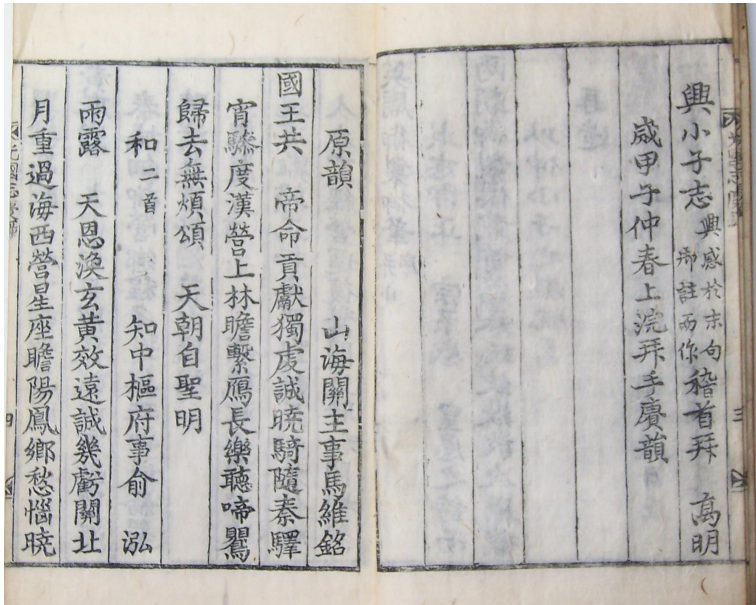 興小子志 興感於末句御註而作 稽首拜 高明
歲甲子仲春上浣拜手賡韻
原韻 山海關主事馬維銘
國王共 帝命貢獻獨虔誠曉騎隨秦驛
宵驂度漢營上林瞻繫鴈長樂聽啼鸎
歸去無煩頌 天朝自聖明
和二首 知中樞府事俞 泓
雨露 天恩渙玄黃效遠誠幾虧關北
月重過海西營星座瞻陽鳳鄉愁惱曉
光國志慶
三
四